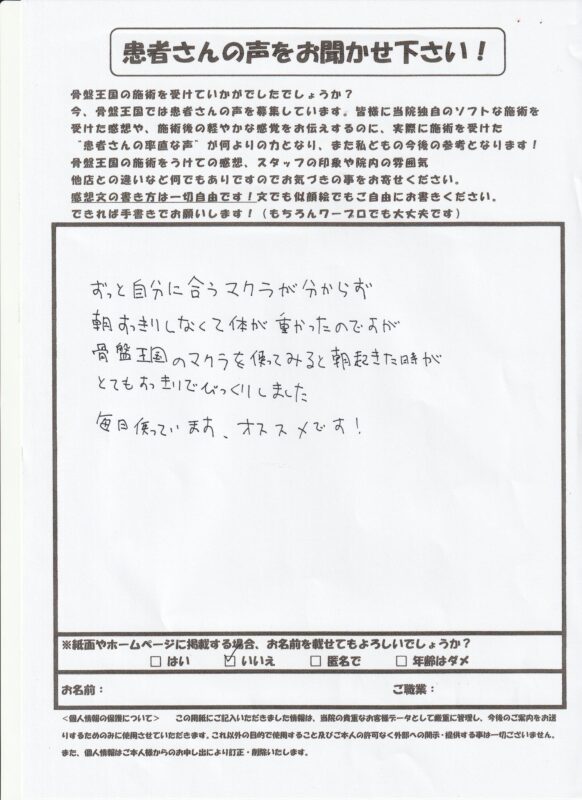 患者さんの声をお聞かせ下さい！
骨盤王国の施術を受けていかがでしたでしょうか？
今、骨盤王国では患者さんの声を募集しています。皆様に当院独自のソフトな施術を
受けた感想や、施術後の軽やかな感覚をお伝えするのに、実際に施術を受けた
“患者さんの率直な声”が何よりの力となり、また私どもの今後の参考となります！
骨盤王国の施術をうけての感想、スタッフの印象や院内の雰囲気
他店との違いなど何でもありですのでお気づきの事をお寄せください。
感想文の書き方は一切自由です！文でも似顔絵でもご自由にお書きください。
できれば手書きでお願いします！（もちろんワープロでも大丈夫です）
ずっと自分に合うマクラが分からず
朝すっきりしなくて体が重かったのですが
骨盤王国のマクラを使ってみると朝起きた時が
とてもすっきりでびっくりしました
毎日使っています、オススメです！
※紙面やホームページに掲載する場合、お名前を載せてもよろしいでしょうか？
□ はい ☑ いいえ □ 匿名で □ 年齢はダメ
お名前： ご職業：
＜個人情報の保護について＞ この用紙にご記入いただきました情報は、当院の貴重なお客様データとして厳重に管理し、今後のご案内をお送
りするためのみに使用させていただきます。これ以外の目的で使用すること及びご本人の許可なく外部への開示・提供する事は一切ございません。
また、個人情報はご本人様からのお申し出により訂正・削除いたします。